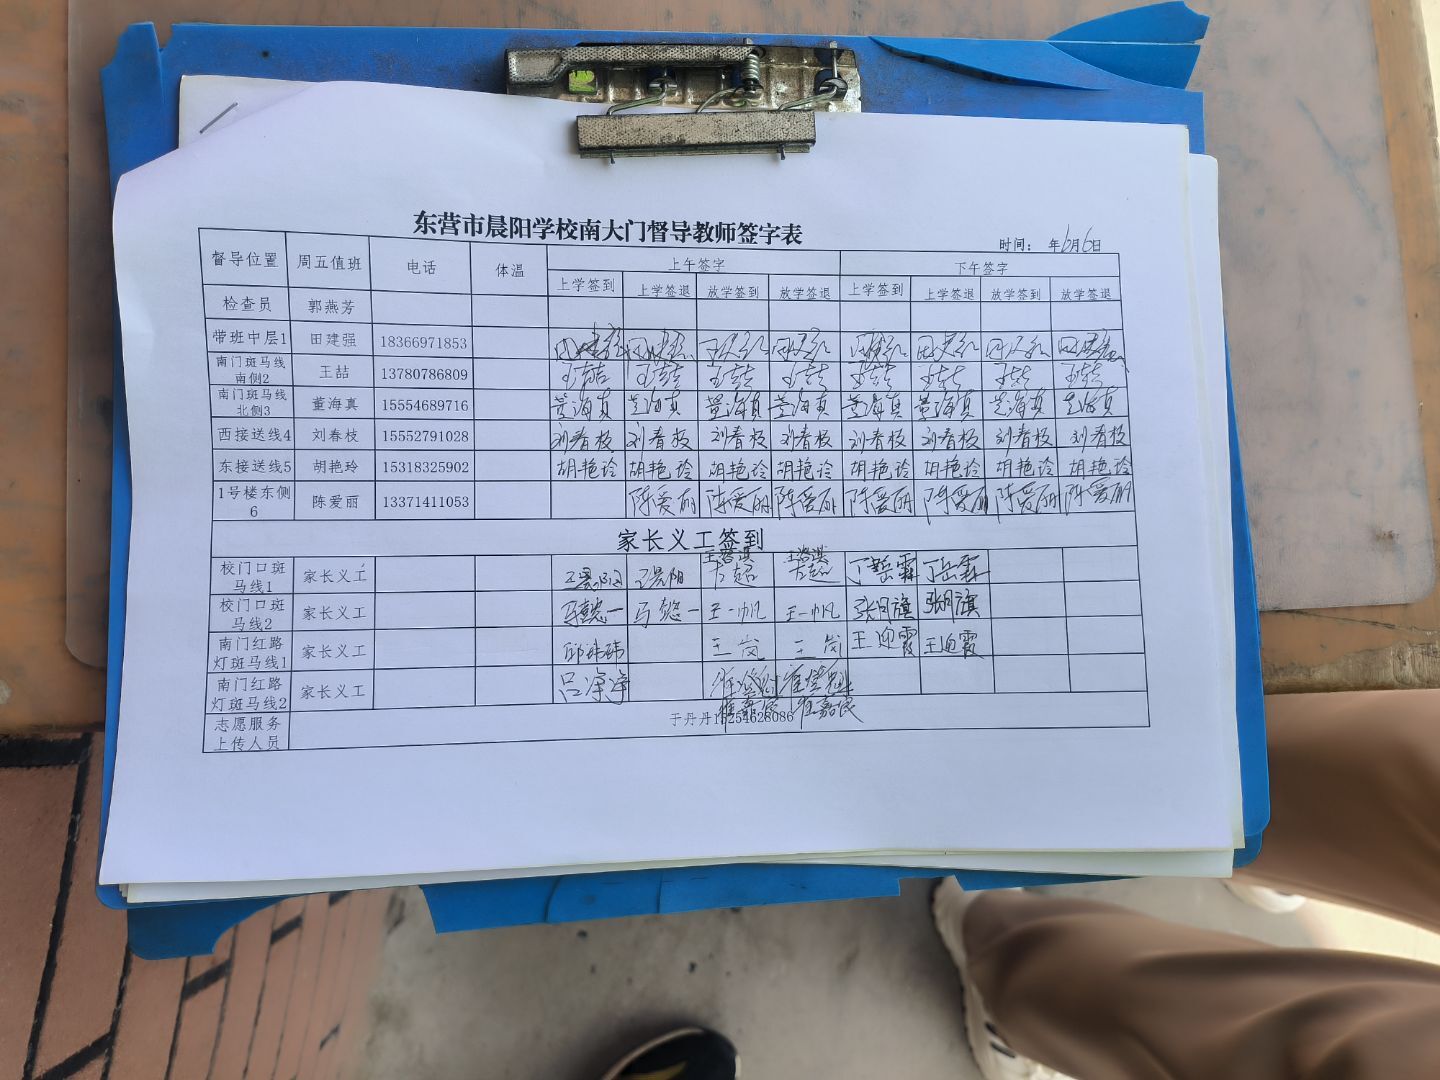 东营市晨阳学校南大门督导教师签字表
时间： 年6月6日
督导位置 周五值班 电话 体温 上午签字 下午签字
上学签到 上学签退 放学签到 放学签退 上学签到 上学签退 放学签到 放学签退
检查员 郭燕芳
带班中层1 田建强 18366971853 田建强 田建强 田建强 田建强 田建强 田建强 田建强
南门斑马线南侧2 王喆 13780786809 王喆 王喆 王喆 王喆 王喆 王喆 王喆 王喆
南门斑马线北侧3 董海真 15554689716 董海真 董海真 董海真 董海真 董海真 董海真 董海真 董海真
西接送线4 刘春枝 15552791028 刘春枝 刘春枝 刘春枝 刘春枝 刘春枝 刘春枝 刘春枝 刘春枝
东接送线5 胡艳玲 15318325902 胡艳玲 胡艳玲 胡艳玲 胡艳玲 胡艳玲 胡艳玲 胡艳玲 胡艳玲
1号楼东侧6 陈爱丽 13371411053 陈爱丽 陈爱丽 陈爱丽 陈爱丽 陈爱丽 陈爱丽 陈爱丽
家长义工签到
校门口斑马线1 家长义工 王晨阳 王晨阳 丁岳霖 丁岳霖
校门口斑马线2 家长义工 马懿一 马懿一 王一帆 王一帆 张月旗 张月旗
南门红路灯斑马线1 家长义工 邱玮玮 王岚 王岚 王迎霞 王迎霞
南门红路灯斑马线2 家长义工 吕净净
崔嘉宸 崔嘉宸
志愿服务上传人员 于丹丹15254628086